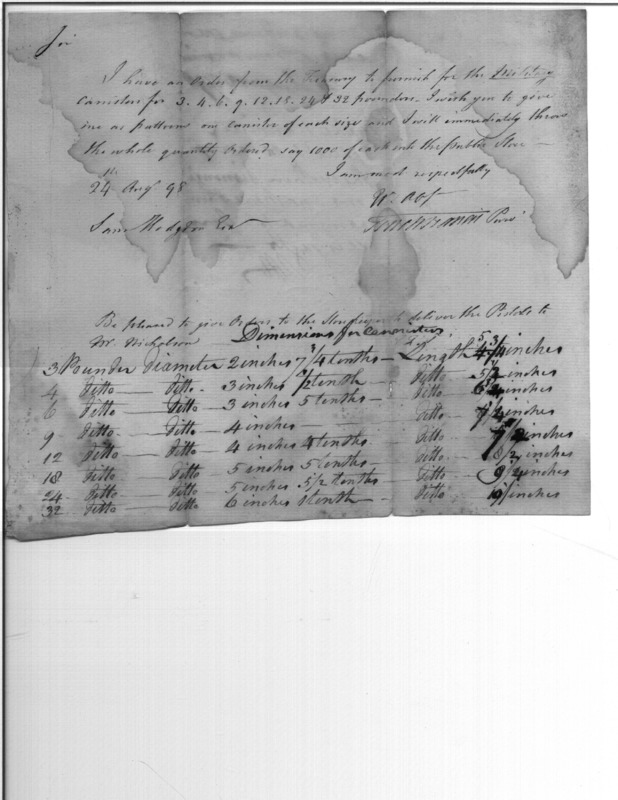 Sir
I have an Order from the Treasury to furnish for the Military
Canisters for 3. 4. 6. 9. 12. 18. 24 & 32 pounders - I wish you to give
me as pattern one canister of each size and I will immediately throw
the whole quantity Ordered, say 1000 of each into the public Store -
I am most respectfully
24th Augt 98
Yr. Obt
Saml Hodgdon Esqr
Be pleased to give Orders to the Storekeeper deliver the to
Mr. Nicholson
Dimensions for Cannisters,
3 Pounder Diameter 2 inches 7 3/4 tenths - Length inches
4 Ditto - Ditto - 3 inches 1/2 tenth - Ditto 5 inches
6 Ditto - Ditto - 3 inches 5 tenths - Ditto inches
9 Ditto - Ditto - 4 inches - Ditto inches
12 Ditto - Ditto 4 inches 4 tenths - Ditto inches
18 Ditto - Ditto 5 inches 5 tenths - Ditto 8 1/2 inches
24 Ditto - Ditto 5 inches 5 1/2 tenths - Ditto 9 1/2 inches
32 Ditto - Ditto 6 inches 1 tenth - Ditto inches